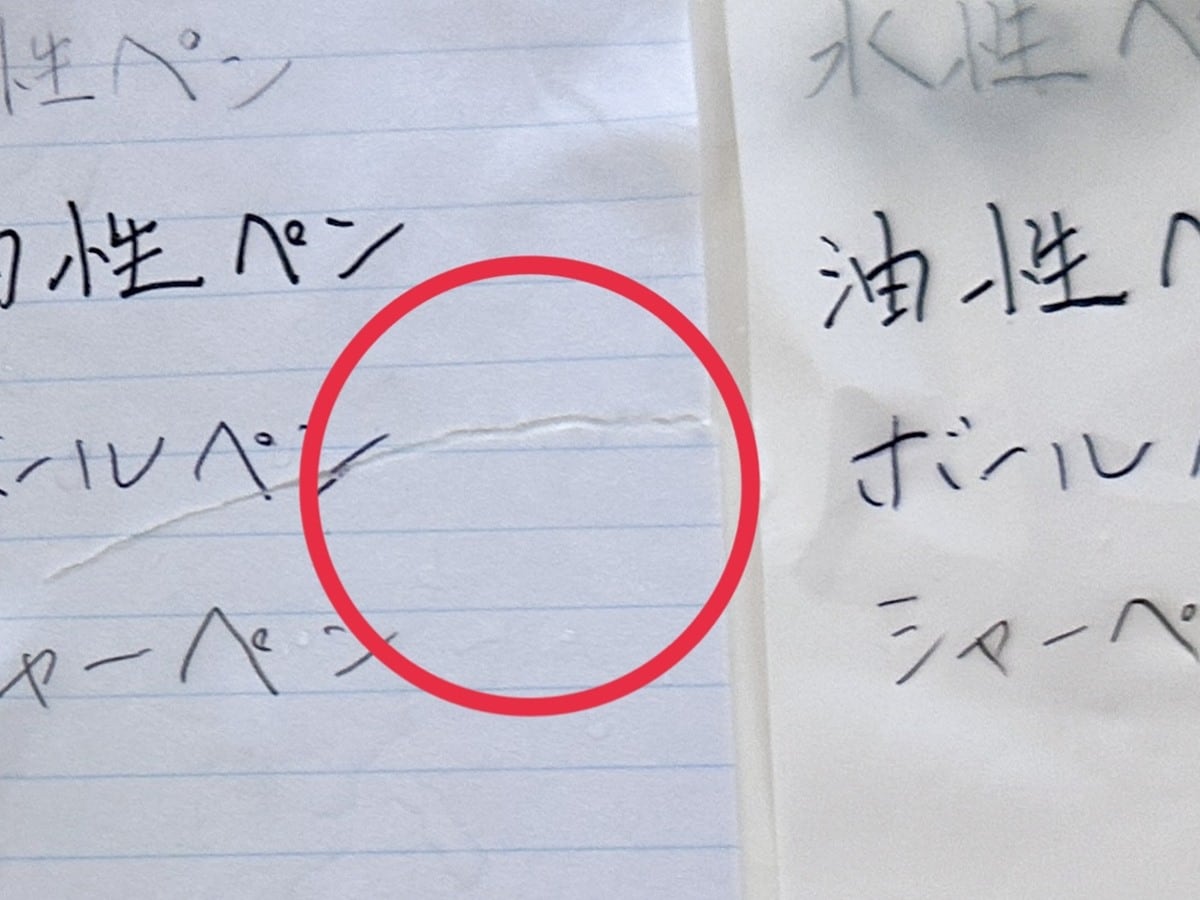 性ペン
性ペン
ールペン
ャーペン
水性ペ
油性ペ
ボールペ
シャーペ